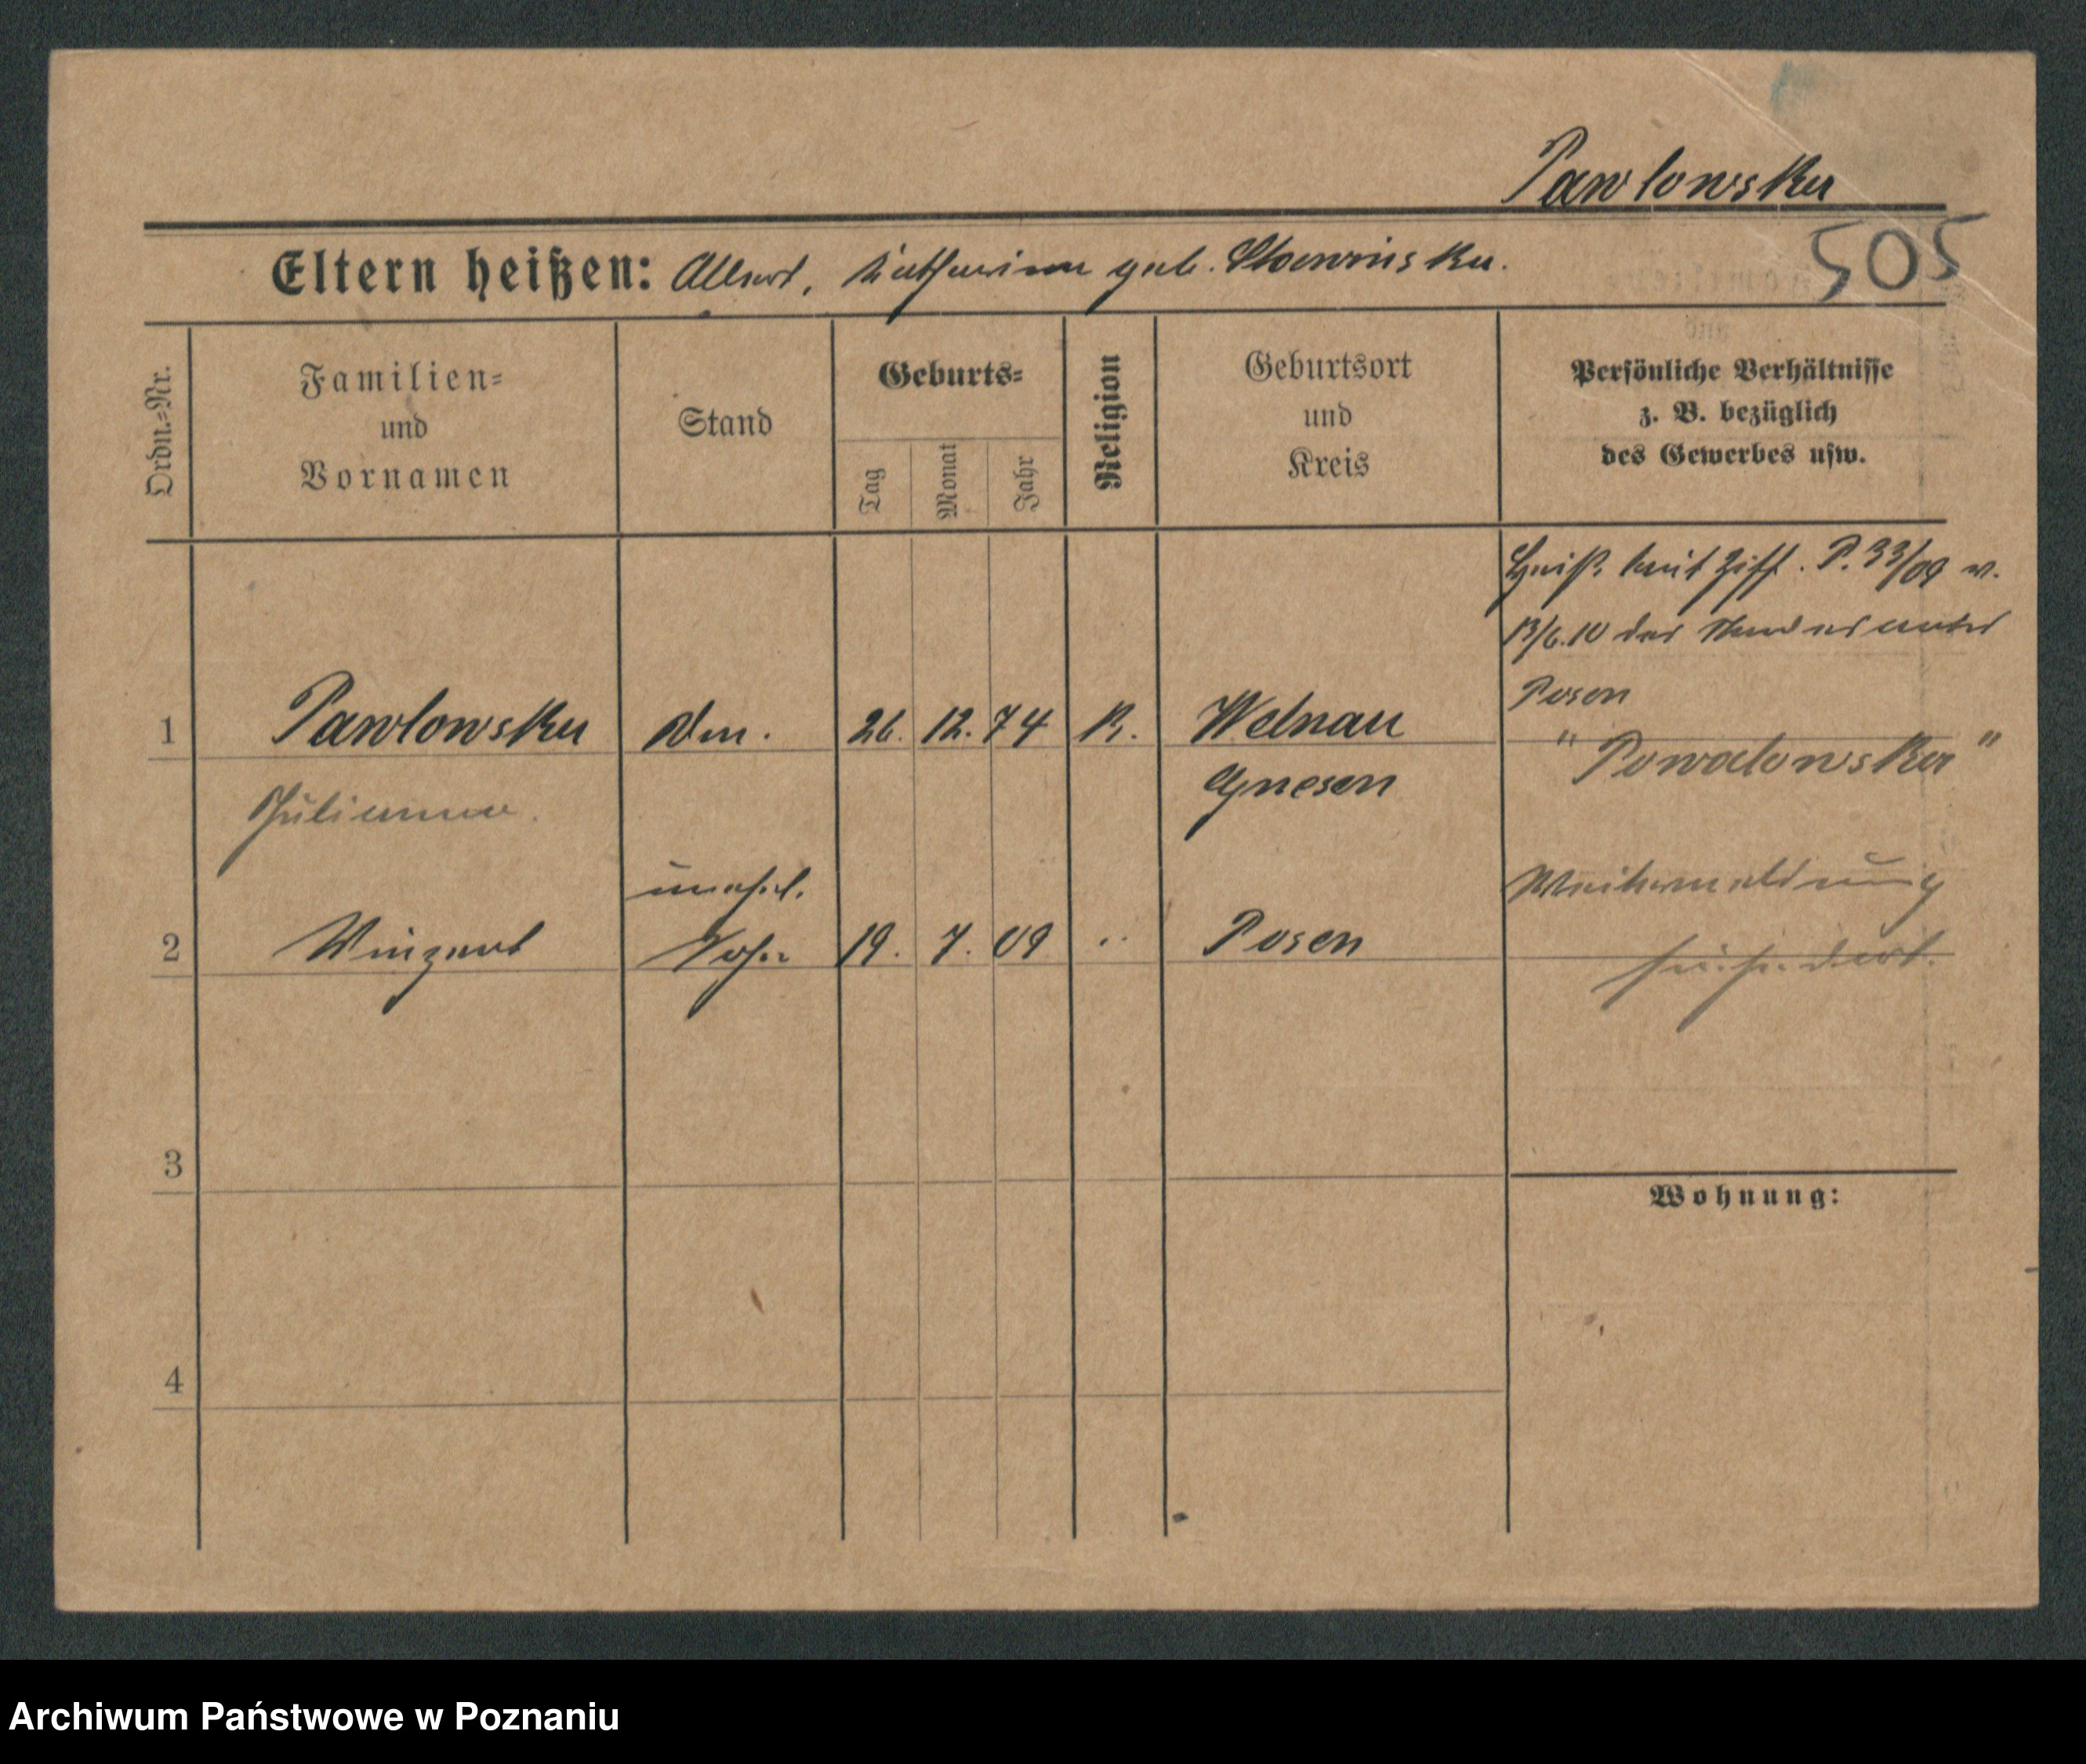 Pawlowska
505
Eltern heißen: Albert, Katharina geb. Slowinska.
Ordn.=Nr.
Familien=
und
Vornamen
Stand
Geburts=
Tag
Monat
Jahr
Religion
Geburtsort
und
Kreis
Persönliche Verhältnisse
z. B. bezüglich
des Gewerbes usw.
Heißt laut Ziff. P. 33/09 v.
13/6.10 des Standesamtes
Posen
"Powalowska"
1 Pawlowska 26. 12. 74 K. Welnau
Julianna. Gnesen
unehel.
2 Vinzent Sohn 19. 7. 09 " Posen
3
4
Wohnung:
Archiwum Państwowe w Poznaniu